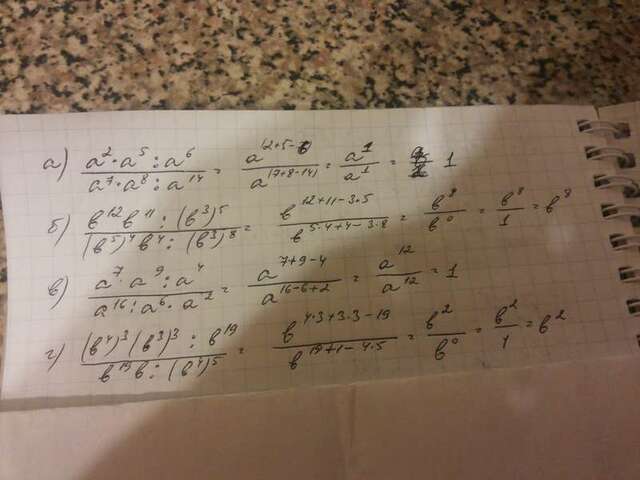 а) (a² · a⁵ : a⁶)/(a⁷ · a⁸ : a¹⁴) = a^(2+5-6)/a^(7+8-14) = a¹/a¹ = 1
б) (b¹² b¹¹ : (b³)⁵)/((b⁵)⁴ b⁴ : (b³)⁸) = b^(12+11-3·5)/b^(5·4+4-3·8) = b⁸/b⁰ = b⁸/1 = b⁸
в) (a⁷ · a⁹ : a⁴)/(a¹⁶ : a⁶ · a²) = a^(7+9-4)/a^(16-6+2) = a¹²/a¹² = 1
г) ((b⁴)³ (b³)³ : b¹⁹)/(b¹⁹ b : (b⁴)⁵) = b^(4·3+3·3-19)/b^(19+1-4·5) = b²/b⁰ = b²/1 = b²